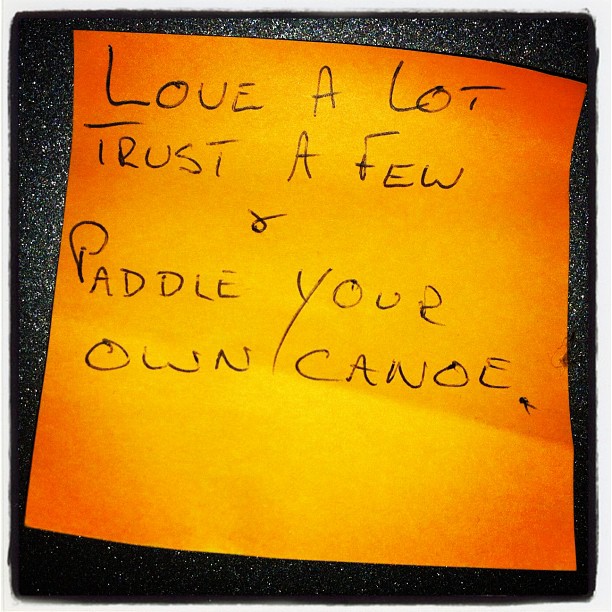 LOVE A LOT
TRUST A FEW
&
PADDLE YOUR
OWN CANOE.